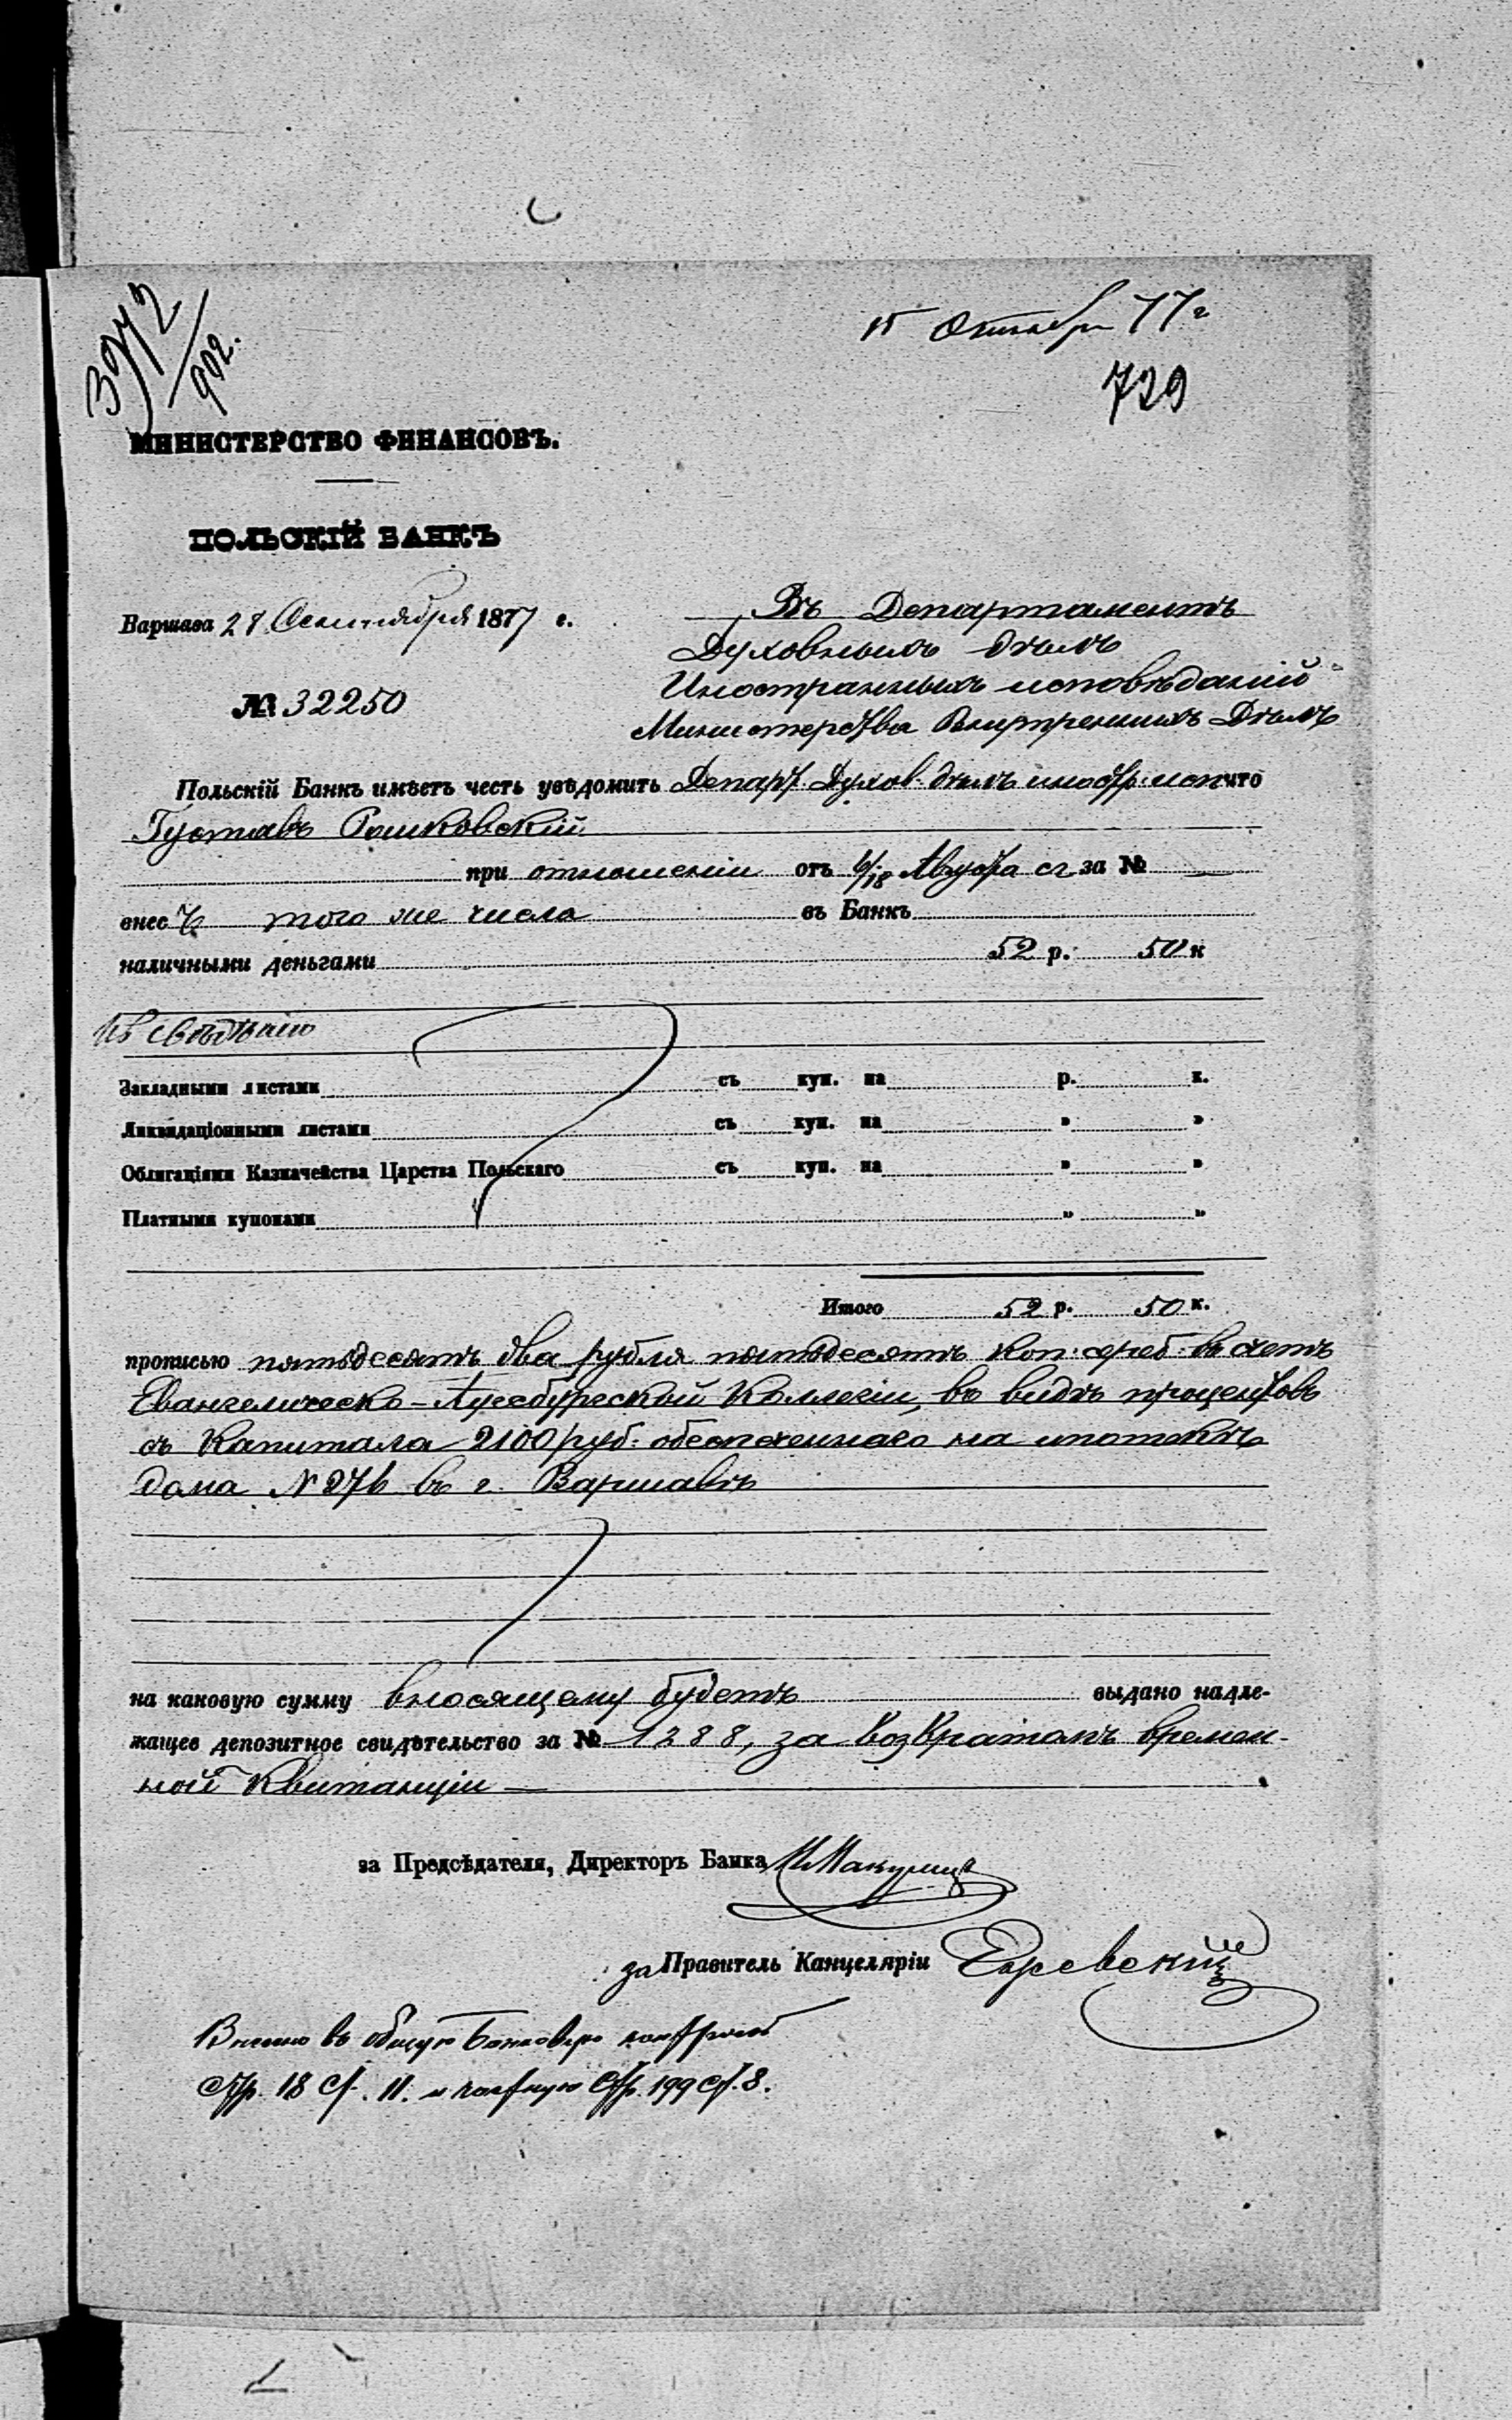 3972/992.
15 Октября 77 г
729
МИНИСТЕРСТВО ФИНАНСОВЪ.
ПОЛЬСКІЙ БАНКЪ
Варшава 28 Сентября 1877 г.
№ 32250
Въ Департаментъ
Духовныхъ дѣлъ
Иностранныхъ исповѣданій
Министерства Внутреннихъ Дѣлъ
Польскій Банкъ имѣетъ честь увѣдомить Департ. Духов. дѣлъ иностр. исп что
Густавъ Рошковскій
при отношеніи отъ 6/18 Августа сг за № —
внесъ того же числа въ Банкъ
наличными деньгами 52 р. 50 к
Къ свѣдѣнію
Закладными листами съ куп. на р. к.
Ликвидаціонными листами съ куп. на " "
Облигаціями Казначейства Царства Польскаго съ куп. на " "
Платными купонами " "
Итого 52 р. 50 к.
прописью пятьдесятъ два рубля пятьдесятъ коп. сереб. въ счетъ
Евангелическо-Аугсбургской Коллегіи, въ видѣ процентовъ
съ Капитала 2100 руб. обеспеченнаго на ипотекѣ
дома № 276 въ г. Варшавѣ
на каковую сумму вносящему будетъ выдано надле-
жащее депозитное свидѣтельство за № 1288, за возвратомъ времен-
ной Квитанціи
за Предсѣдателя, Директоръ Банка
за Правитель Канцеляріи
Внесено въ общую Банковую контроль
Стр. 18 Ст. 11. и частную Стр. 199 Ст. 8.